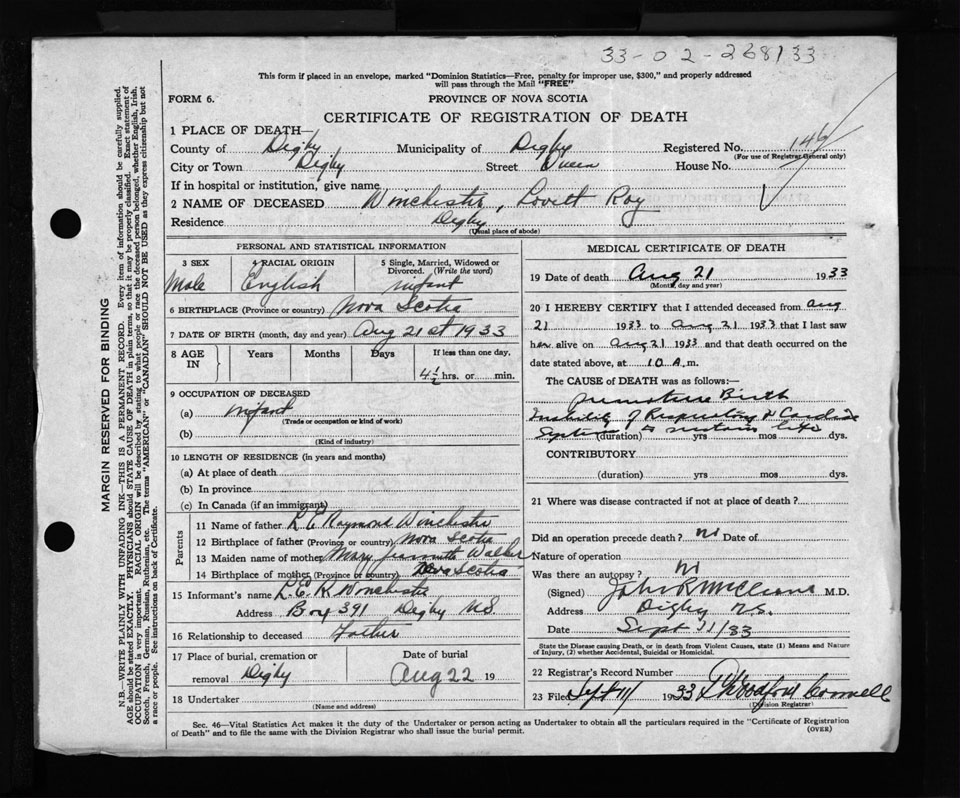 33-02-268133
This form if placed in an envelope, marked "Dominion Statistics—Free, penalty for improper use, $300," and properly addressed
will pass through the Mail "FREE"
FORM 6.
PROVINCE OF NOVA SCOTIA
CERTIFICATE OF REGISTRATION OF DEATH
1 PLACE OF DEATH—
County of Digby Municipality of Digby Registered No. 149
(For use of Registrar General only)
City or Town Digby Street Queen House No.
If in hospital or institution, give name
2 NAME OF DECEASED Winchester, Lovett Roy
Residence Digby
(Usual place of abode)
PERSONAL AND STATISTICAL INFORMATION
3 SEX
Male
4 RACIAL ORIGIN
English
5 Single, Married, Widowed or
Divorced. (Write the word)
infant
6 BIRTHPLACE (Province or country) Nova Scotia
7 DATE OF BIRTH (month, day and year) Aug 21st 1933
8 AGE IN Years Months Days If less than one day,
4½ hrs. or min.
9 OCCUPATION OF DECEASED
(a) infant
(Trade or occupation or kind of work)
(b)
(Kind of industry)
10 LENGTH OF RESIDENCE (in years and months)
(a) At place of death
(b) In province
(c) In Canada (if an immigrant)
Parents
11 Name of father L E Raymond Winchester
12 Birthplace of father (Province or country) Nova Scotia
13 Maiden name of mother Mary Walker
14 Birthplace of mother (Province or country) Nova Scotia
15 Informant's name L. E. R Winchester
Address Box 391 Digby N.S.
16 Relationship to deceased Father
17 Place of burial, cremation or
removal Digby
Date of burial
Aug 22 19
18 Undertaker
(Name and address)
MEDICAL CERTIFICATE OF DEATH
19 Date of death Aug 21 1933
(Month, day and year)
20 I HEREBY CERTIFY that I attended deceased from Aug
21 1933 to Aug 21 1933 that I last saw
h alive on Aug 21 1933 and that death occurred on the
date stated above, at 10 A. m.
The CAUSE of DEATH was as follows:—
Premature Birth
Inability of Respiratory & Cardiac
System to sustain life
(duration) yrs mos dys.
CONTRIBUTORY
(duration) yrs mos dys.
21 Where was disease contracted if not at place of death?
Did an operation precede death? no Date of
Nature of operation
Was there an autopsy? no
(Signed) John R M.D.
Address Digby N.S.
Date Sept 11/33
State the Disease causing Death, or in death from Violent Causes, state (1) Means and Nature
of Injury, (2) whether Accidental, Suicidal or Homicidal.
22 Registrar's Record Number
23 Filed Sept 11/ 1933
(Division Registrar)
Sec. 46—Vital Statistics Act makes it the duty of the Undertaker or person acting as Undertaker to obtain all the particulars required in the "Certificate of Registration
of Death" and to file the same with the Division Registrar who shall issue the burial permit.
(OVER)
MARGIN RESERVED FOR BINDING
N.B.—WRITE PLAINLY WITH UNFADING INK—THIS IS A PERMANENT RECORD. Every item of information should be carefully supplied.
AGE should be stated EXACTLY. PHYSICIANS should STATE CAUSE OF DEATH in plain terms, so that it may be properly classified. Exact statement of
OCCUPATION is very important. RACIAL ORIGIN will be described by stating to what people or race the deceased person belonged, whether English, Irish,
Scotch, French, German, Russian, Ruthenian, etc. The terms "AMERICAN" or "CANADIAN" SHOULD NOT BE USED as they express citizenship but not
a race or people. See instructions on back of Certificate.